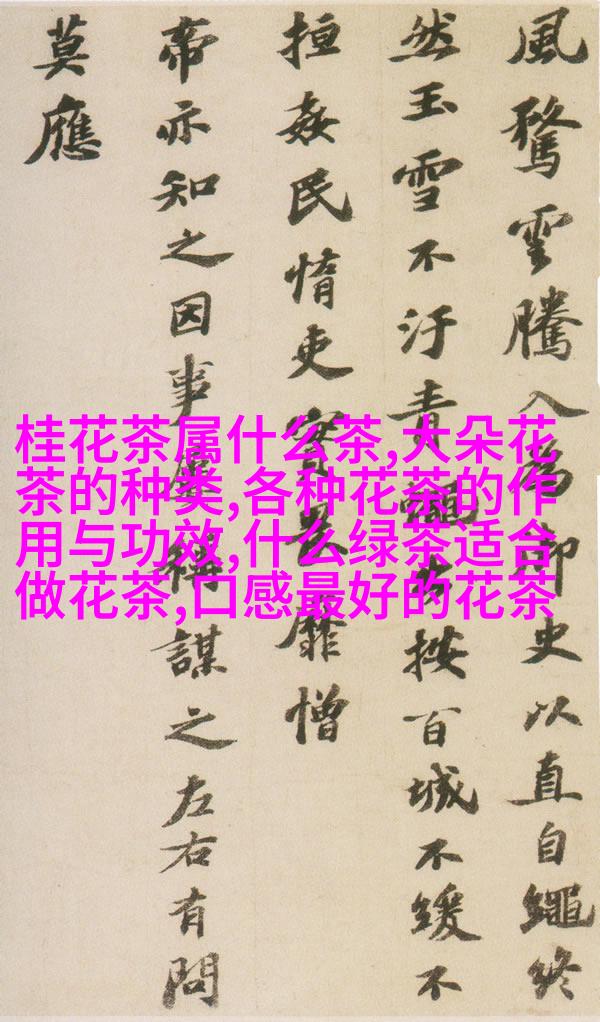 風騖雲騰入為御史以直自繩終
然玉雪不汙青按百城不緩不
姦民惰吏實畏靡憎
帝亦知之因事屢稱謀之左右有問
莫應
桂花茶属什么茶,大朵花
茶的种类,各种花茶的作
用与功效,什么绿茶适合
做花茶,口感最好的花茶